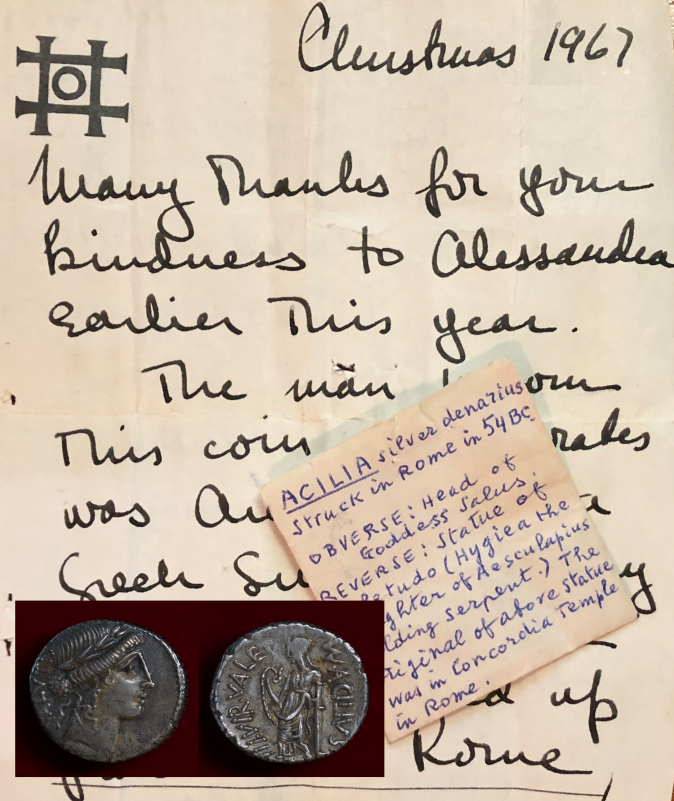 Christmas 1967
Many Thanks for your
kindness to Alessandra
Earlier This year.
The man
This coin
was
Greek
up
Rome
ACILIA silver denarius
struck in Rome in 54 BC
OBVERSE: Head of
Goddess Salus.
REVERSE: Statue of
letudo (Hygiea the
ghter of Aesculapius
lding serpent.) The
original of above statue
was in Concordia Temple
in Rome.
IIIVIR VALE
ACILIVS